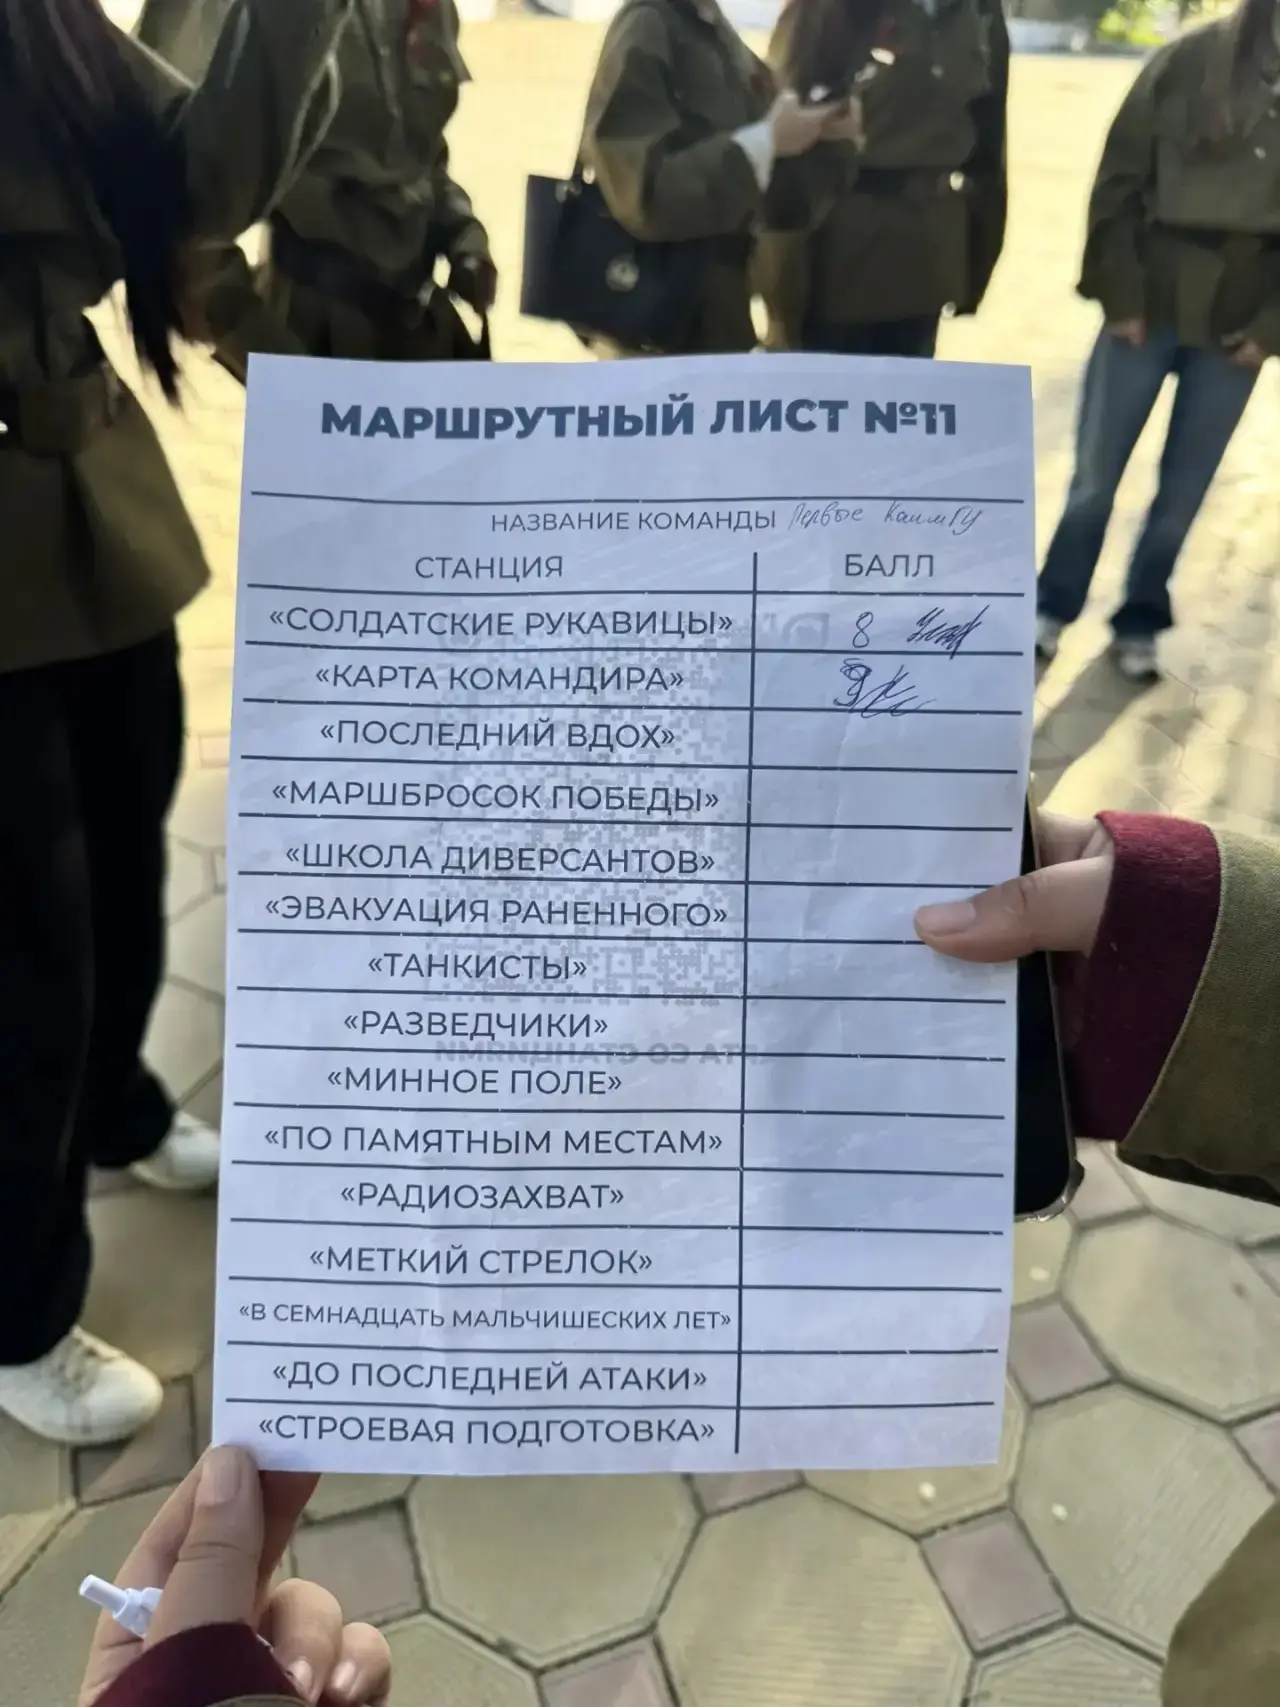 МАРШРУТНЫЙ ЛИСТ №11
НАЗВАНИЕ КОМАНДЫ Первые КалмГУ
СТАНЦИЯ БАЛЛ
«СОЛДАТСКИЕ РУКАВИЦЫ» 8
«КАРТА КОМАНДИРА»
«ПОСЛЕДНИЙ ВДОХ»
«МАРШБРОСОК ПОБЕДЫ»
«ШКОЛА ДИВЕРСАНТОВ»
«ЭВАКУАЦИЯ РАНЕННОГО»
«ТАНКИСТЫ»
«РАЗВЕДЧИКИ»
«МИННОЕ ПОЛЕ»
«ПО ПАМЯТНЫМ МЕСТАМ»
«РАДИОЗАХВАТ»
«МЕТКИЙ СТРЕЛОК»
«В СЕМНАДЦАТЬ МАЛЬЧИШЕСКИХ ЛЕТ»
«ДО ПОСЛЕДНЕЙ АТАКИ»
«СТРОЕВАЯ ПОДГОТОВКА»